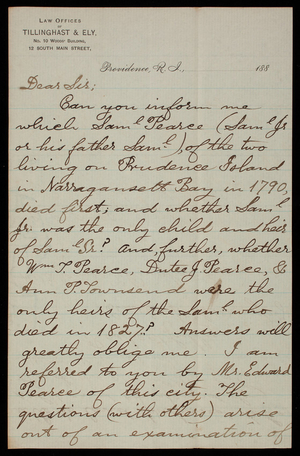 LAW OFFICES
OF
TILLINGHAST & ELY,
No. 10 WOODS' BUILDING,
12 SOUTH MAIN STREET,
Providence, R. I., 188
Dear Sir;
Can you inform me
which Saml Pearce (Saml Jr
or his father Saml) of the two
living on Prudence Island
in Narragansett Bay in 1790,
died first; and whether Saml
Jr. was the only child and heir
of Saml Sr? And further, whether
Wm T. Pearce, Dutee J Pearce, &
Ann P. Townsend were the
only heirs of the Saml who
died in 1827? Answers will
greatly oblige me. I am
referred to you by Mr. Edward
Pearce of this city. The
questions (with others) arise
out of an examination of